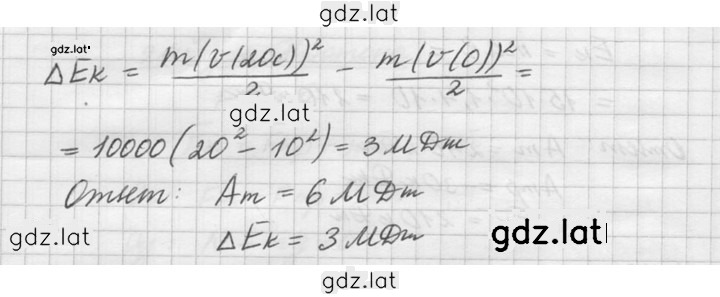 gdz.lat
gdz.lat
ΔEк = m(v(20с))²/2 - m(v(0))²/2 =
gdz.lat
= 10000(20² - 10²) = 3 МДж
Ответ: Aт = 6 МДж
gdz.lat
ΔEк = 3 МДж
gdz.lat
gdz.lat